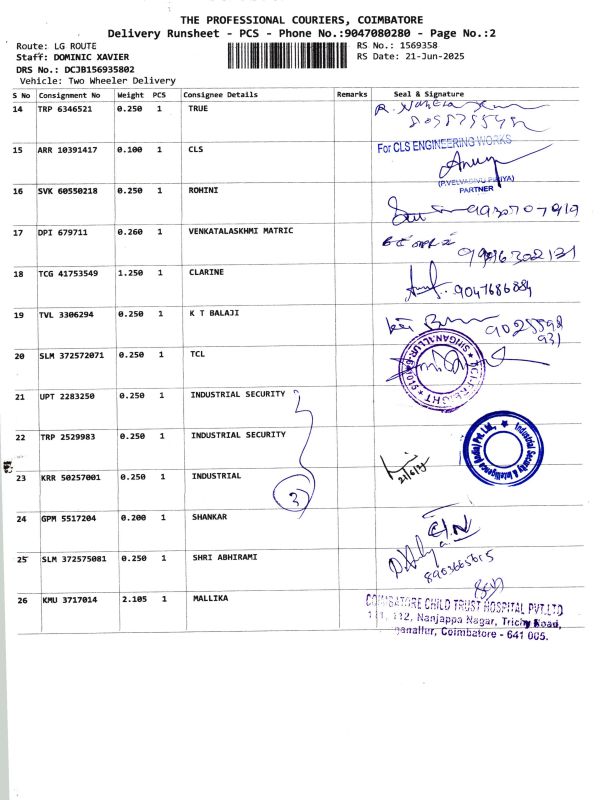 THE PROFESSIONAL COURIERS, COIMBATORE
Delivery Runsheet - PCS - Phone No.:9047080280 - Page No.:2
Route: LG ROUTE
RS No.: 1569358
Staff: DOMINIC XAVIER
RS Date: 21-Jun-2025
DRS No.: DCJB156935802
Vehicle: Two Wheeler Delivery
S No Consignment No Weight PCS Consignee Details Remarks Seal & Signature
14 TRP 6346521 0.250 1 TRUE
15 ARR 10391417 0.100 1 CLS
For CLS ENGINEERING WORKS
PARTNER
16 SVK 60550218 0.250 1 ROHINI
17 DPI 679711 0.260 1 VENKATALASKHMI MATRIC
18 TCG 41753549 1.250 1 CLARINE
9047686884
19 TVL 3306294 0.250 1 K T BALAJI
20 SLM 372572071 0.250 1 TCL
21 UPT 2283250 0.250 1 INDUSTRIAL SECURITY
22 TRP 2529983 0.250 1 INDUSTRIAL SECURITY
Industrial Security & Intelligence (India) Pvt. Ltd.,
23 KRR 50257001 0.250 1 INDUSTRIAL
3
21/6/25
24 GPM 5517204 0.200 1 SHANKAR
25 SLM 372575081 0.250 1 SHRI ABHIRAMI
8903665615
26 KMU 3717014 2.105 1 MALLIKA
COIMBATORE CHILD TRUST HOSPITAL PVT.LTD
111, 112, Nanjappa Nagar, Trichy Road,
ganallur, Coimbatore - 641 005.